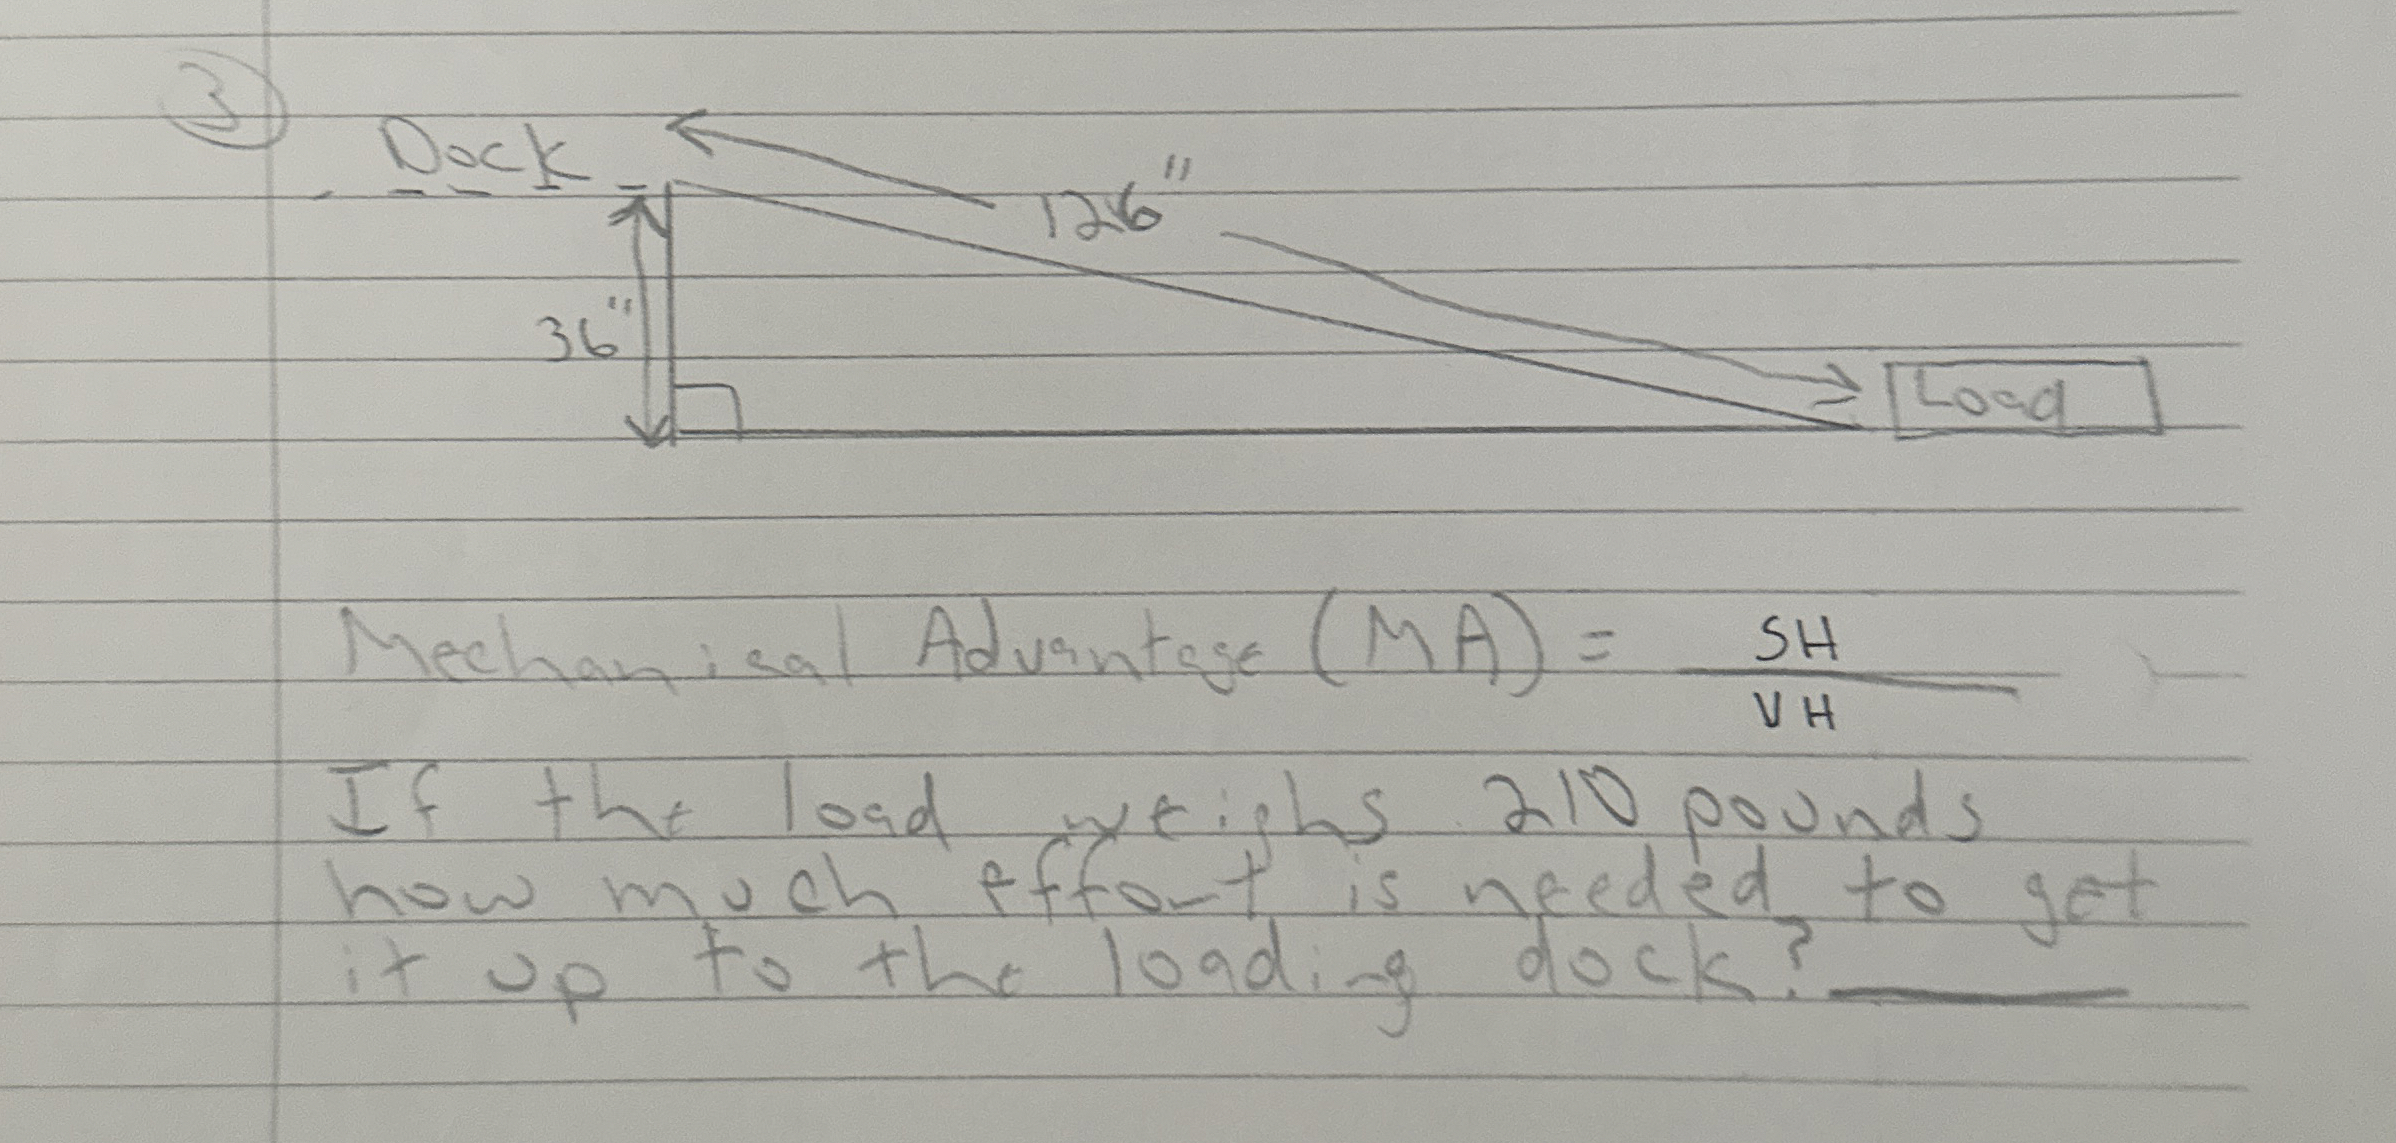 3
Dock
126"
36"
Load
Mechanical Advantage (MA) = SH
VH
If the load weighs 210 pounds
how much effort is needed to get
it up to the loading dock?